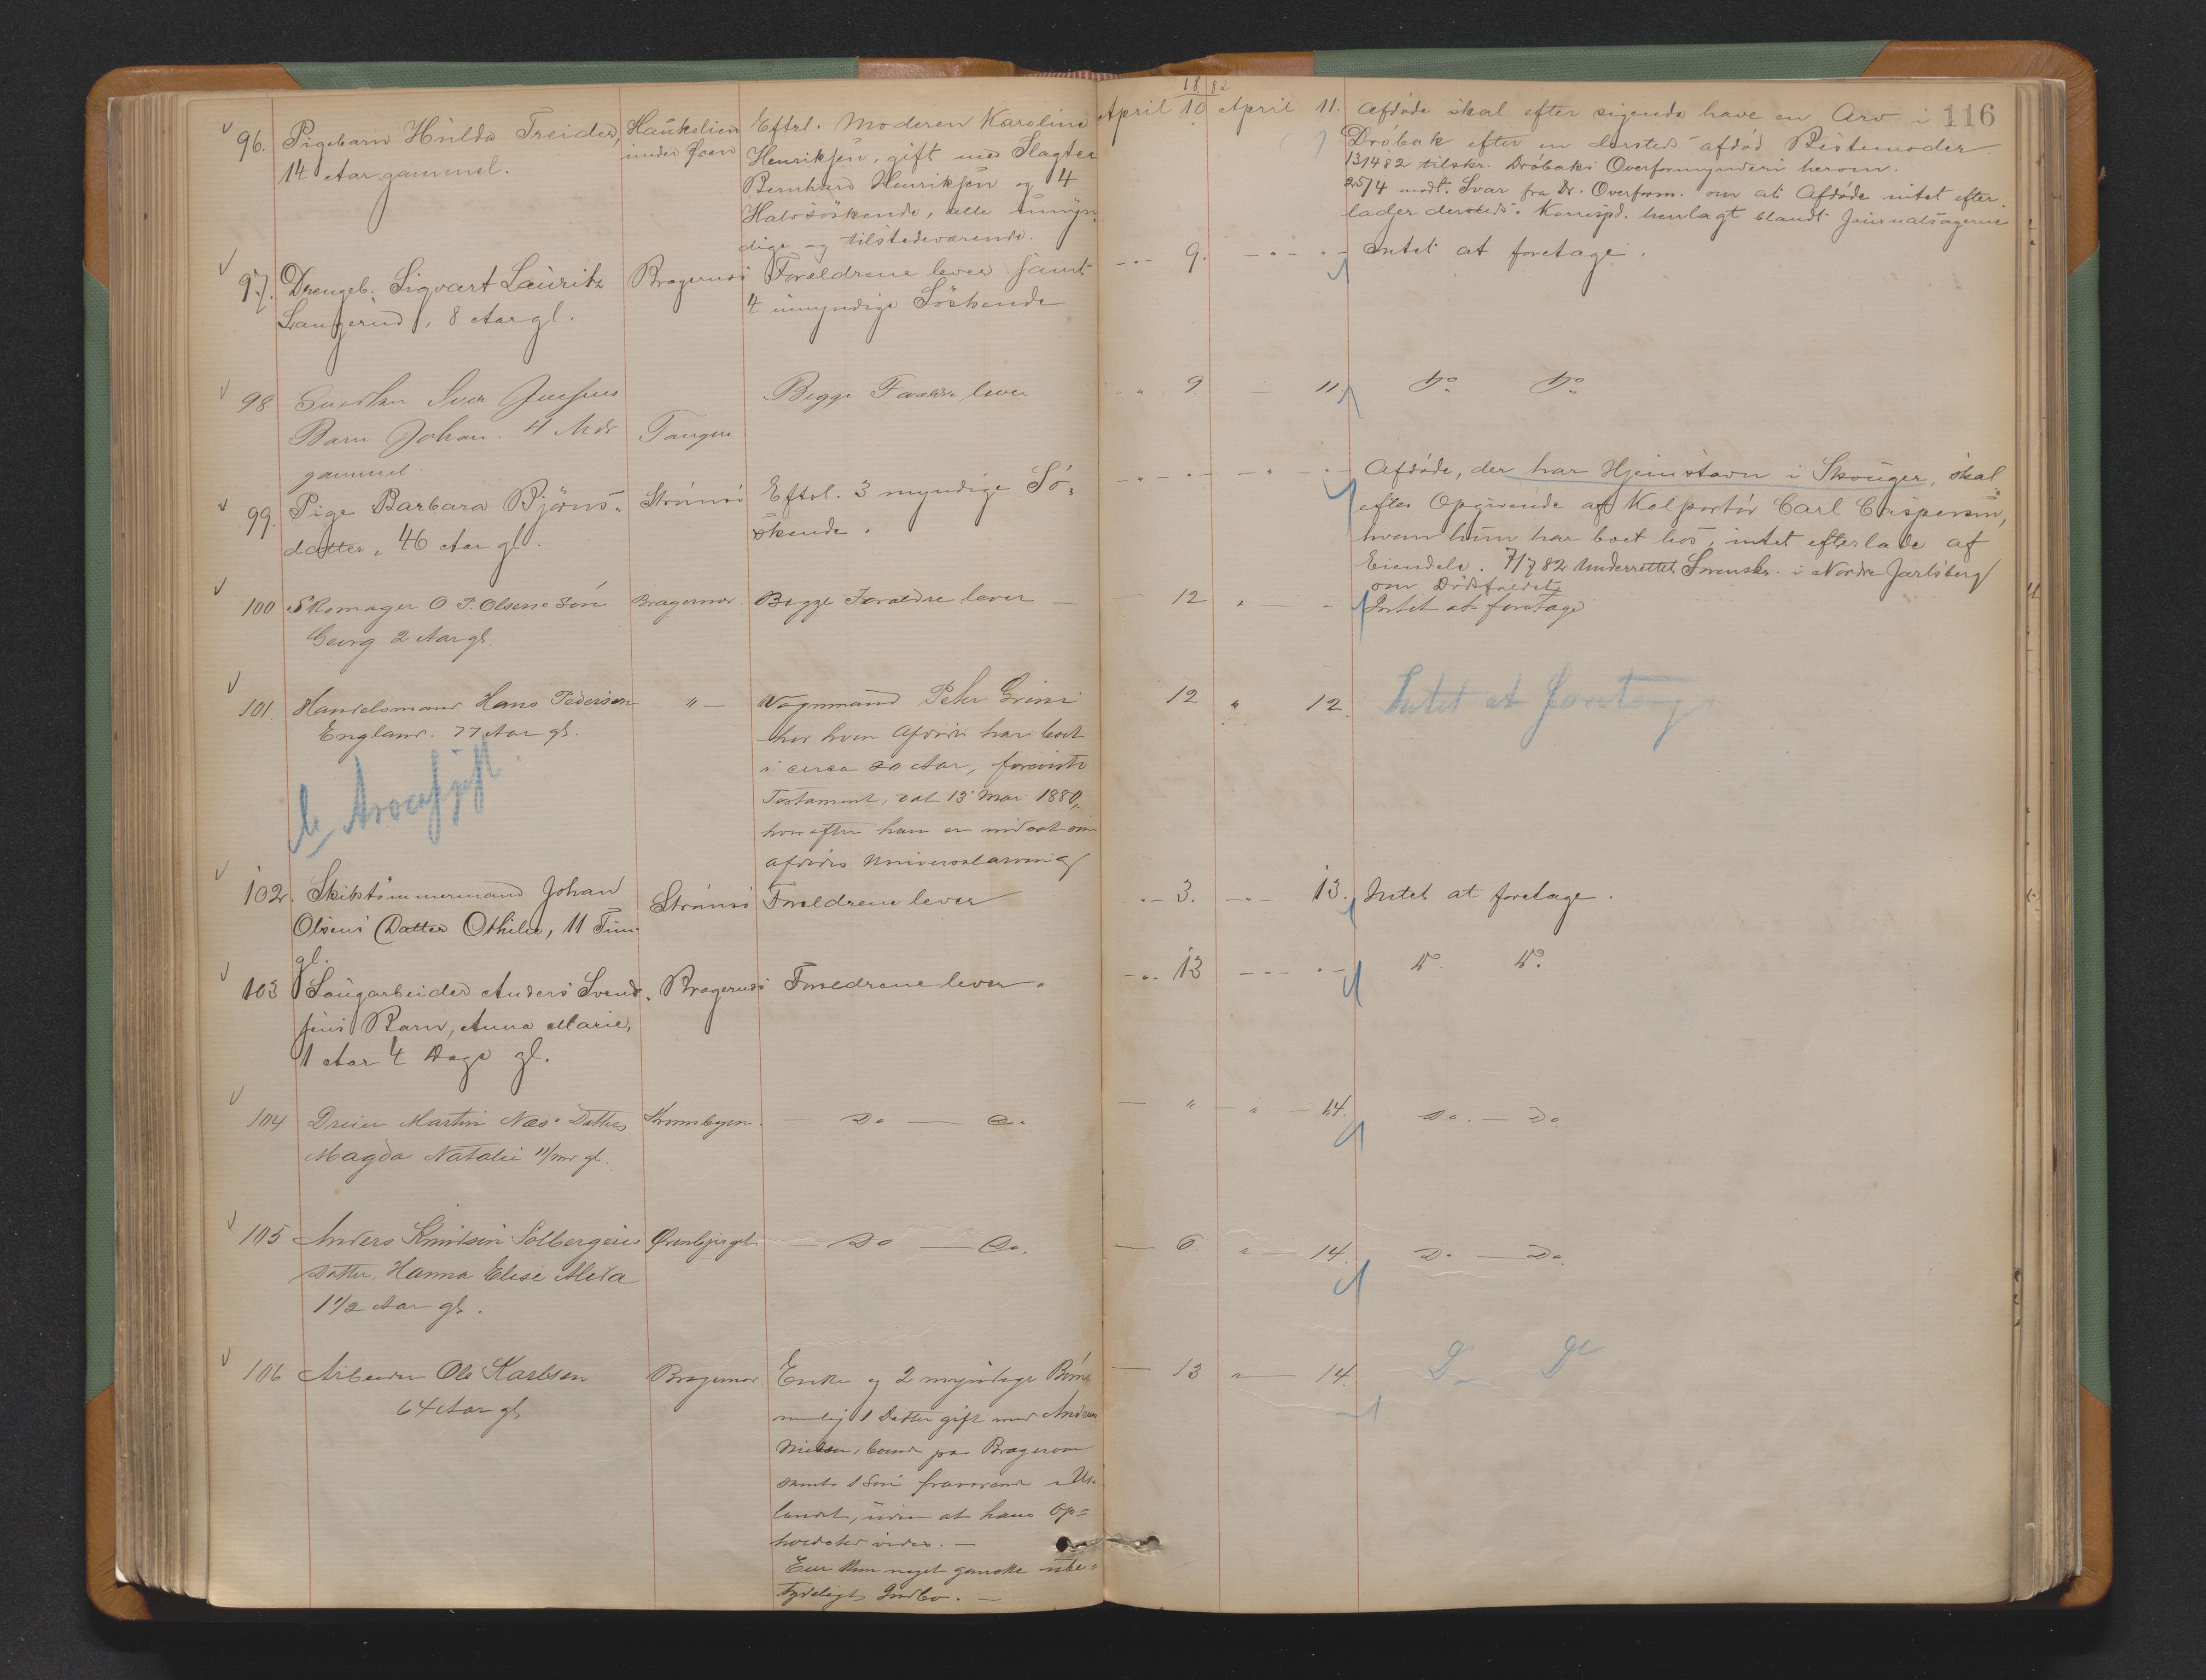 1882
116
96. Pigebarn Hulda Treider,
14 Aar gammel.
Haukelien
under Aaen
Efterl. Moderen Karoline
Henriksen, gift med Slagter
Bernhard Henriksen og 4
Halvsöskende, alle umyn-
dige og tilstedeværende.
April 10 April 11.
Afdöde skal efter sigende have en Arv i
Dröbak efter en dersteds afdöd Bestemoder
13/4 82 tilskr. Dröbaks Overformynderi herom.
25/4 modt. Svar fra Dr. Overform. om at Afdöde intet efter-
lader dersteds. Korrespd. henlagt blandt Journalsagerne
97. Drengeb. Sigvart Lauritz
Langerud, 8 Aar gl.
Bragernes
Forældrene lever samt
4 umyndige Söskende
9.
Intet at foretage.
98 Snedker Iver Jensens
Barn Johan. 4 Mdr
gammel.
Tangen
Begge Forældre lever
" 9. 11.
Do Do
99. Pige Barbara Björns-
datter, 46 Aar gl.
Strömsö
Efterl. 3 myndige Sö-
skende.
Afdöde, der har Hjemstavn i Skouger, skal
efter Opgivende af Kolportör Carl Caspersen,
hvem hun har boet hos, intet efterlade af
Eiendele. 7/7 82 Underrettet Sorenskr. i Nordre Jarlsberg
om Dödsfaldet
100 Skomager O P. Olsens Sön
Georg 2 Aar gl.
Bragernes
Begge Forældre lever
12 "
Intet at foretage
101 Handelsmand Hans Pedersen
England. 77 Aar gl.
"
Vognmand Peter Grimi
hos hvem Afdöde har boet
i circa 20 Aar, foreviste
Testament, dat 13 Mai 1880,
hvorefter han er indsat som
afdödes Universalarving
12 " 12.
Intet at foretage
Arveafgift.
102. Skibstömmermand Johan
Olsens Datter Othilie, 11 Tim.
gl.
Strömsö
Forældrene lever
3. 13.
Intet at foretage.
103 Saugarbeider Anders Svend-
sens Barn, Anna Marie,
1 Aar 4 Dage gl.
Bragernes
Forældrene lever.
13
Do. Do.
104 Dreier Martin Næs' Datter
Magda Natalie 11/mr gl.
Do — Do
" " 14.
Do. — Do
105 Anders Knudsen Solbergeies
Datter. Hanna Elise Alida
1 1/2 Aar gl.
Do — Do.
6. " 14.
Do — Do.
106 Arbeider Ole Karlsen
64 Aar gl.
Bragernes
Enke og 2 myndige Börn
nemlig 1 Datter gift med Andreas
Nielsen, boende paa Bragernes
samt 1 Sön fraværende i Ud-
landet, uden at hans Op-
holdsted vides. —
Eier kun noget ganske ube-
tydeligt Indbo. —
13 " 14.
Do Do